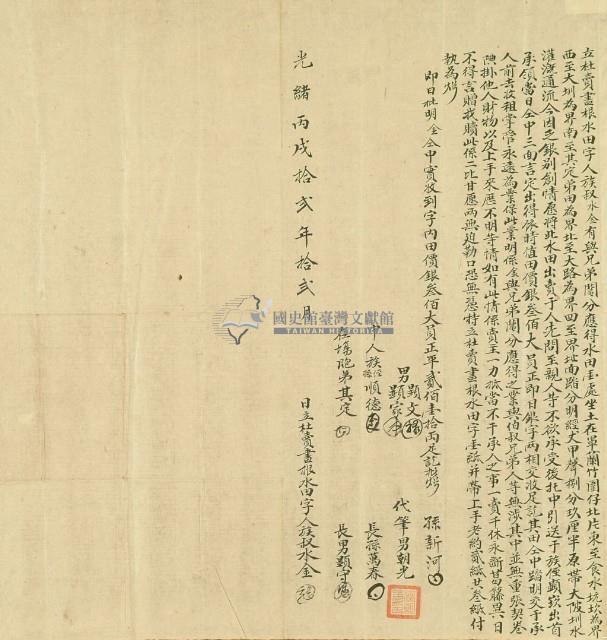 立杜賣盡根水田字人族叔水金有與兄弟鬮分應得水田壹處坐土在罩蘭竹圍仔北片東至食水坑坎為界
西至大圳為界南至其定弟田為界北至大路為界四至界址面踏分明經大甲聲捌分玖厘半原帶大陂圳水
灌溉通流今因乏銀別創情愿將此水田出賣于人先問至親人等不欲承受後托中引送于族侄顯欽出首
承領當日仝中三面言定出得依時值田價銀叁佰大員正即日銀字兩相交收足訖其田仝中踏明交于承
人前去收租掌管永遠為業保此業明係金與兄弟鬮分應得之業與伯叔兄弟人等無涉其中並無重張契卷
掛他人財物以及上手來歷不明等情如有此情係賣主一力抵當不干承人之事一賣千休永斷葛藤異日
不得言贈我贖此係二比甘愿兩無迫勒口恐無憑特立杜賣盡根水田字壹紙并帶上手老約貳紙共叁紙付
執為炤
即日批明金仝中實收到字內田價銀叁佰大員正平貳佰壹拾兩足訖批炤
孫新河
男顯文
顯家
代筆男朝光
中人族侄孫順德
長孫萬春
在場胞弟其定
長男顯守
光緒丙戌拾弍年拾弍月 日立杜賣盡根水田字人族叔水金
國史館臺灣文獻館
TAIWAN HISTORICA